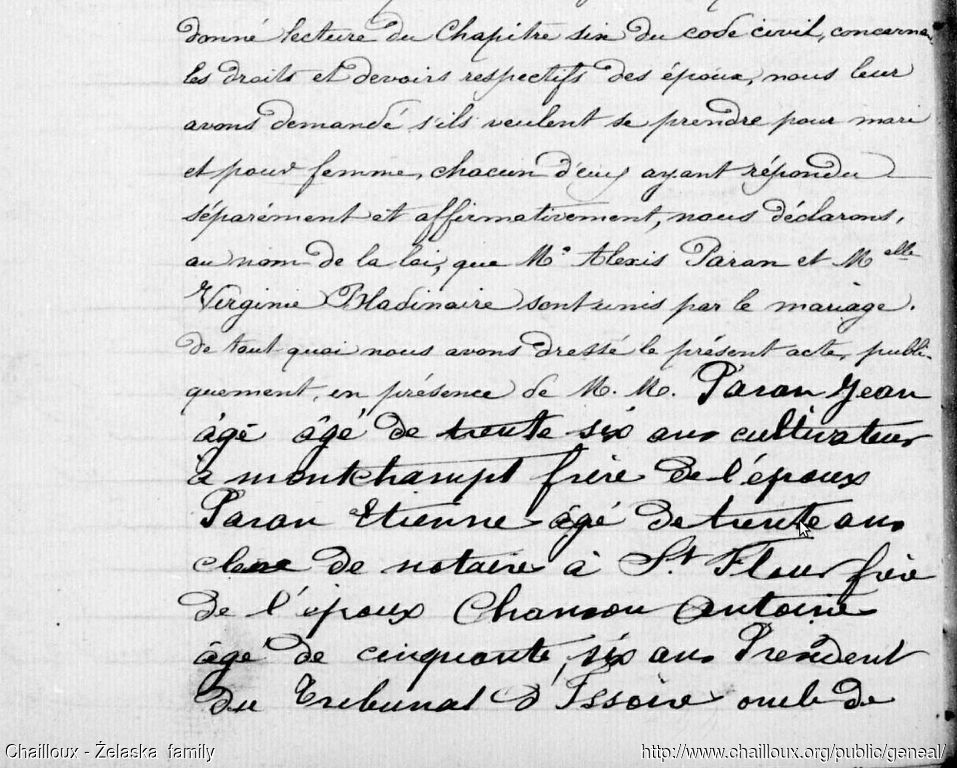 donné lecture du Chapitre six du code civil, concernan
les droits et devoirs respectifs des époux, nous leur
avons demandé s'ils veulent se prendre pour mari
et pour femme, chacun d'eux ayant répondu
séparément et affirmativement, nous déclarons,
au nom de la loi, que Mr Alexis Paran et Melle
Virginie Bladinaire sont unis par le mariage.
de tout quoi nous avons dressé le présent acte, publi-
quement, en présence de M. M. Paran Jean
âgé âgé de trente six ans cultivateur
à montchampt frère de l'époux
Paran Etienne âgé de trente ans
clerc de notaire à St Flour frère
de l'époux Chanson Antoine
âgé de cinquante six ans Président
du Tribunal d'Issoire oncle de
Chailloux - Želaska family
http://www.chailloux.org/public/geneal/